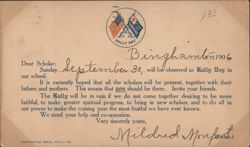 RALLY DAY
Binghamton, 1906
Dear Scholar:
Sunday, September 30, will be observed as Rally Day in
our school.
It is earnestly hoped that all the scholars will be present, together with their
fathers and mothers. This means that you should be there. Invite your friends.
The Rally will be in vain if we do not come together desiring to be more
faithful, to make greater spiritual progress, to bring in new scholars, and to do all in
our power to make the coming year the most faithful we have ever known.
We need your help and co-operation.
Very sincerely yours,
Mildred